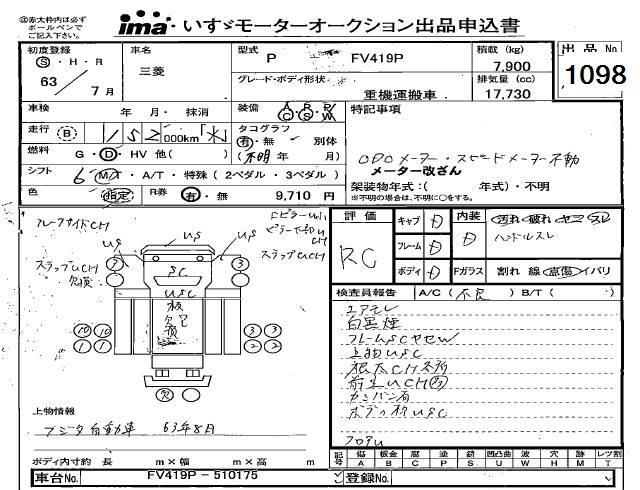 ㊟赤太枠内は必ず
ボールペンで
ご記入下さい。
ima いすゞモーターオークション出品申込書
初度登録
Ⓢ・H・R
63 / 7 月
車名
三菱
型式
P FV419P
グレード・ボディ形状
重機運搬車
積載 (kg)
7,900
排気量 (cc)
17,730
出品No
1098
車検 年 月・抹消
装備 A/C P/S P/W
特記事項
走行 Ⓑ 152 ,000km
タコグラフ
有・無 別体
(不明 年 月)
燃料 G・Ⓓ・HV 他( )
シフト 6 M/T・A/T・特殊(2ペダル・3ペダル)
色 指定 R券 有・無 9,710 円
ODOメーター・スピードメーター不動
メーター改ざん
架装物年式:( 年式)・不明
※不明の場合は、不明に○をする。
評価
RC
キャブ D
フレーム D
ボディ D
内装 D
汚れ 破れ ヤニ スレ
ハンドルスレ
Fガラス 割れ 線 点傷 イバリ
検査員報告 A/C(不良) B/T( )
エアモレ
白黒煙
フレームSCヤセW
上物USC
根太CH多所
前左UCH
カンバン有
ボディ板USC
フロアU
フレームサイドCH
US
US
US
スラップUCH
欠損
スラップUCH
SC
USC
板
欠損
上物情報
フジタ自動車 63年8月
ボディ内寸約 長 m×幅 m×高 m
車台No. FV419P－510175
登録No.
記号
傷 A
板金 B
腐 C
塗 P
錆 S
凹凸曲 U
波 W
穴 H
跡 M
レツ割 T